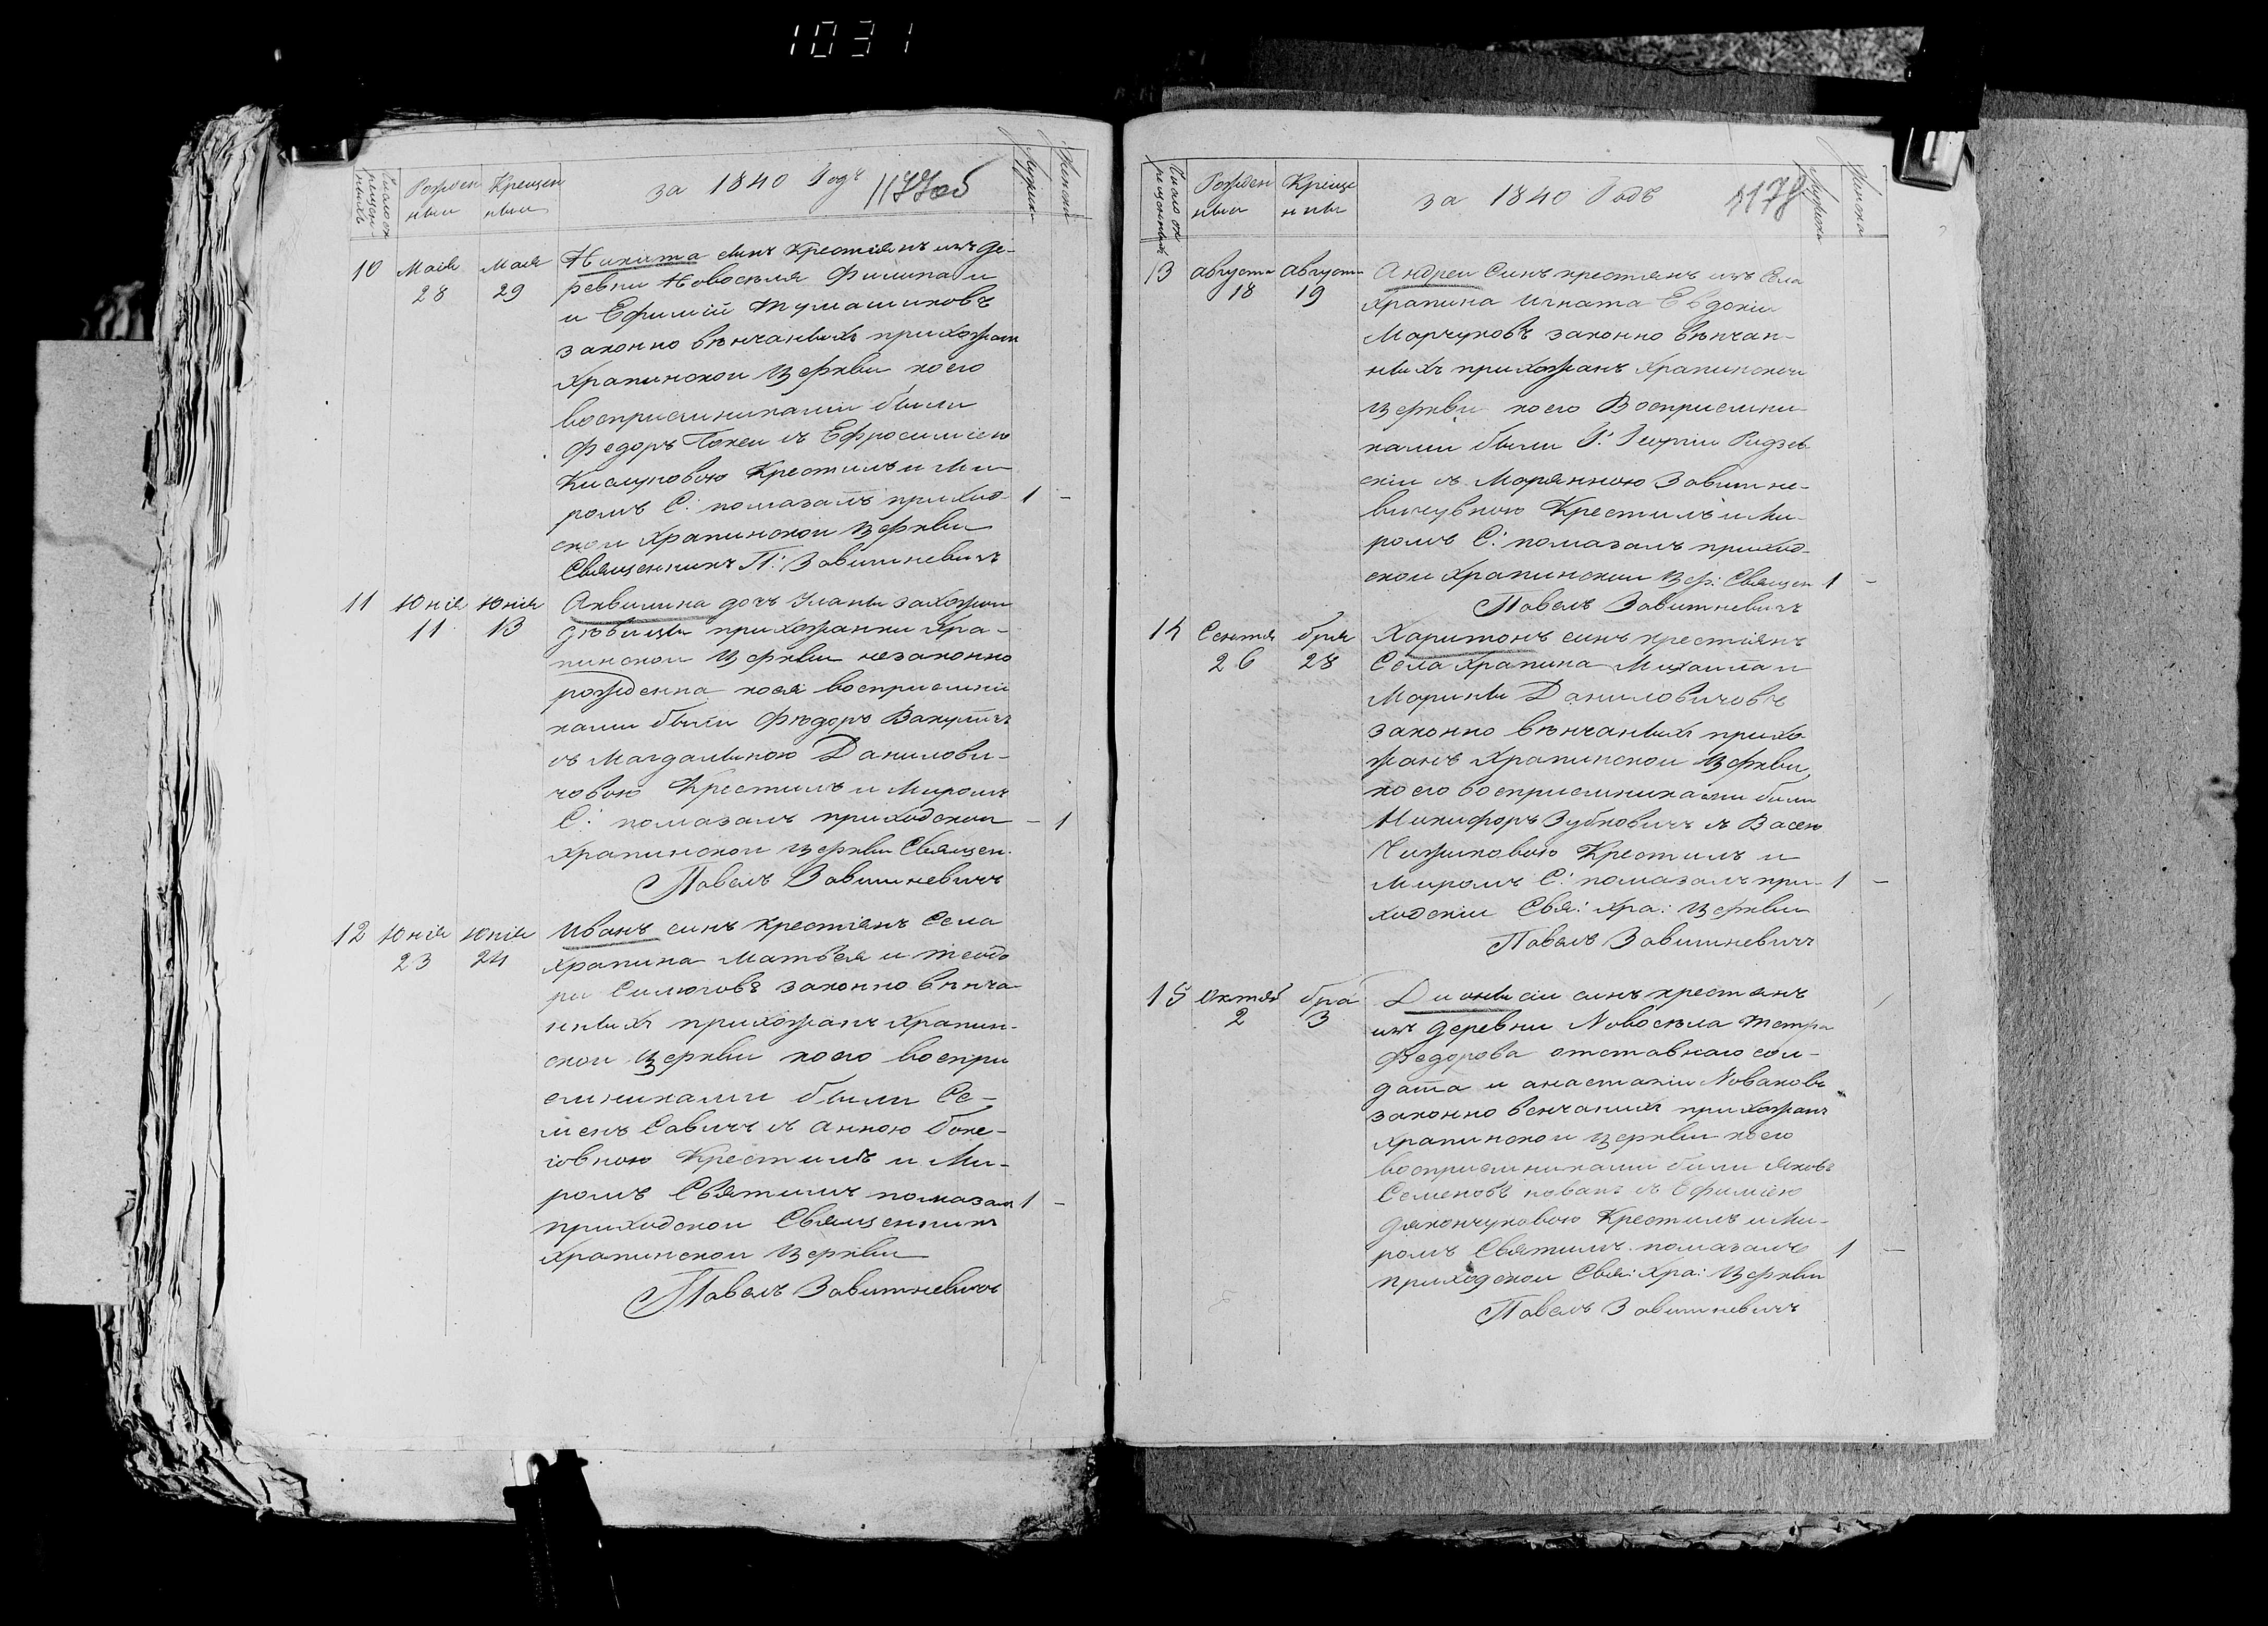 1031
Число кр
рещен
ныхъ
Рожден
ныи
Крещен
ныи
за 1840 Годъ
1177об
Мужска
Женска
10 Маія 28 Мая 29
Никита синъ крестіянъ изъ де-
ревни Новоселя Филипа и
и Ефимій
законно вѣнчаныхъ прихожан
Храпинскои церкви коего
воспріемниками были
Федоръ съ Ефросиміею
Крестилъ и Ми
ромъ С: помазалъ приход- 1 -
скои Храпинскои церкви
Священникъ П: Завитневичъ
11 Юнія 11 Юнія 13
Аквилина дочъ
дѣвицы прихожанки Хра-
пинскои церкви незаконно
рожденна коея воспріемни
ками были Фѣдоръ Вакуличъ
съ Магдалыною Данилови-
човою Крестилъ и Миромъ
С: помазалъ приходскои - 1
Храпинскои церкви Священ.
Павелъ Завитневичъ
12 Юнія 23 Юнія 24
Иванъ синъ крестіянъ Села
Храпина Матвея и Теодо
ри законно вѣнча
ныхъ прихожанъ Храпин-
скои церкви коего воспри
емниками были Се-
менъ Савичъ съ Анною Боке-
човною Крестилъ и Ми-
ромъ Святимъ помазалъ 1 -
приходскои Священникъ
Храпинскои церкви
Павелъ Завитневичъ
Число кр
рещенныхъ
Рожден
ныи
Креще
нныи
за 1840 Годъ
1178
Мужска
Женска
13 Августа 18 Августа 19
Андреи Синъ крестянъ изъ Села
Храпина Игната Евдокіи
Марчуковъ законно вѣнчан-
ныхъ прихожанъ Храпинскои
церкви коего Восприемни-
ками были Г: Георгіи Ридзев
скіи съ Марянною Завитне-
вичувною Крестилъ и Ми-
ромъ С: помазалъ приход-
скои Храпинскии цер: Священ 1 -
Павелъ Завитневичъ
14 Сентя 26 брія 28
Харитонъ синъ крестіянъ
Села Храпина Михаила и
Марины Даниловичовъ
законно вѣнчаныхъ прихо
жанъ Храпинскои церкви
коего восприемниками били
Никифоръ Зубковичъ съ Васею
Чижиковою Крестилъ и
Миромъ С: помазалъ при- 1 -
ходскіи Свя: Хра: церкви
Павелъ Завитневичъ
15 Октяб 2 бра 3
Дионысіи синъ крестянъ
изъ деревни Новосѣла Петра
Федорова отставнаго сол-
дата и Анастазіи Новаковъ
законно венчанихъ прихожанъ
Храпинскои церкви коего
воспріемниками били Яковъ
Семеновъ новакъ съ Ефиміею
дякончуковою Крестилъ и Ми-
ромъ Святимъ помазалъ 1 -
приходскои Свя: Хра: церкви
Павелъ Завитневичъ